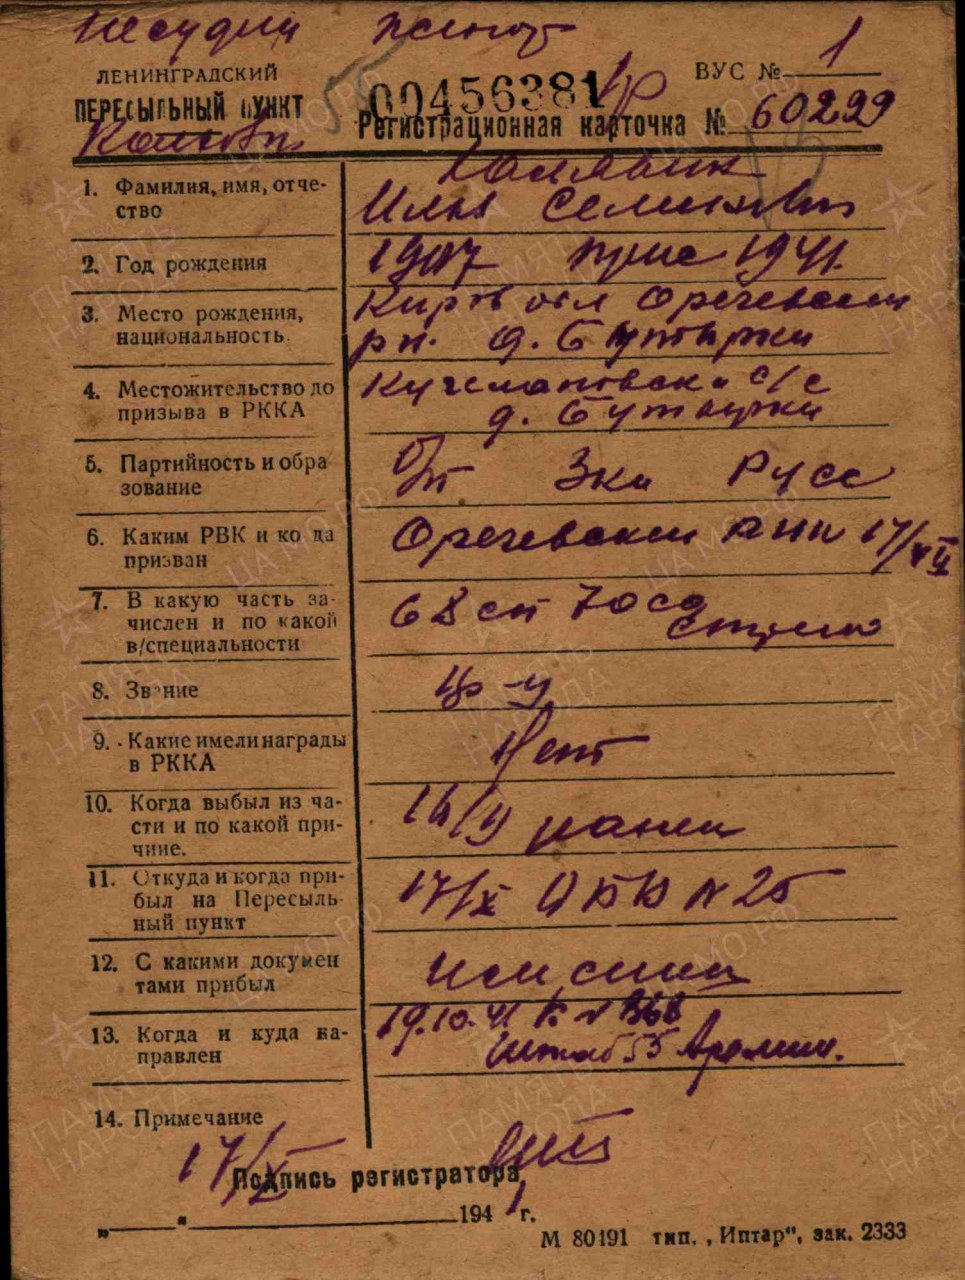 ЛЕНИНГРАДСКИЙ
ПЕРЕСЫЛЬНЫЙ ПУНКТ
00456381
ВУС № 1
Регистрационная карточка № 60299
1. Фамилия, имя, отче-
ство
Илья Семенович
2. Год рождения
1907 приз 1941.
3. Место рождения,
национальность
Киров обл Оричевский
рн. д. Бутырки
4. Местожительство до
призыва в РККА
с/с
д. Бутырки
5. Партийность и обра
зование
б/п 3 кл Русс
6. Каким РВК и ко да
призван
Оричевским 17/VII
7. В какую часть за-
числен и по какой
в/специальности
68 сп 70 сд
стрелк
8. Звание
кр-ц
9. Какие имели награды
в РККА
Нет
10. Когда выбыл из ча-
сти и по какой при-
чине.
ранен
11. Откуда и когда при-
был на Пересыль-
ный пункт
17/X № 25
12. С какими докумен
тами прибыл
13. Когда и куда на-
правлен
19.10.41 к № 368
Штаб 55 Армии.
14. Примечание
17/X
Подпись регистратора
„ “ 1941 г.
М 80191 тип. „Иптар“, зак. 2333
ПАМЯТЬ
НАРОДА
ЦАМО РФ